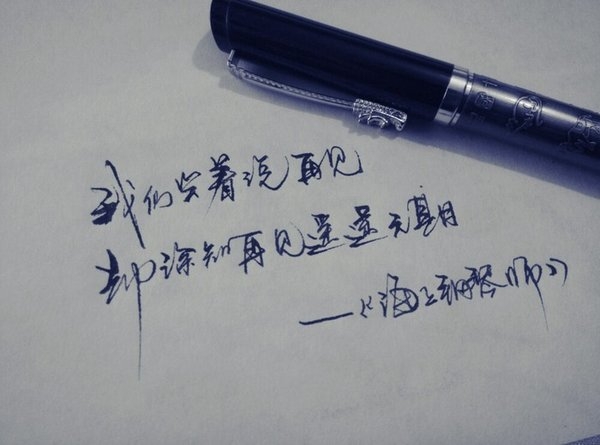 我们笑着说再见
却深知再见遥遥无期
——《海上钢琴师》